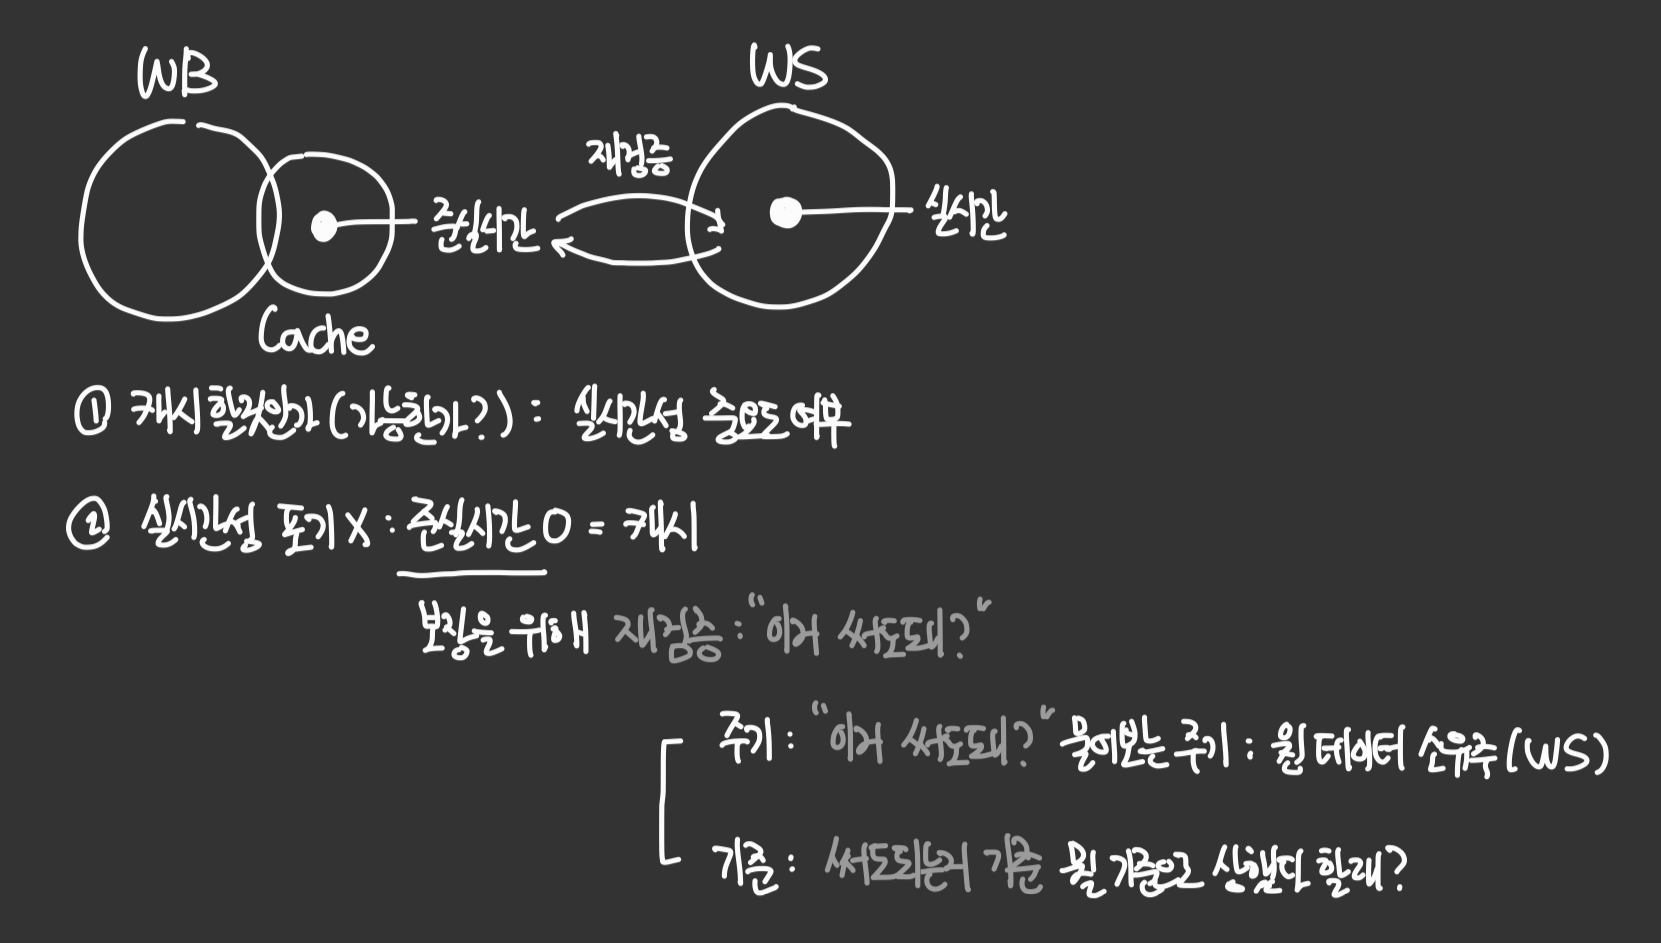 WB
WS
재검증
준실시간
실시간
Cache
① 캐시 할것인가 (가능한가?) : 실시간성 중요도 여부
② 실시간성 포기 X : 준실시간 O = 캐시
보장을 위해 재검증 : "이거 써도돼?"
주기 : "이거 써도돼?" 물어보는 주기 : 원 데이터 소유주(WS)
기준 : 써도되는거 기준 뭘 기준으로 상했다 할래?